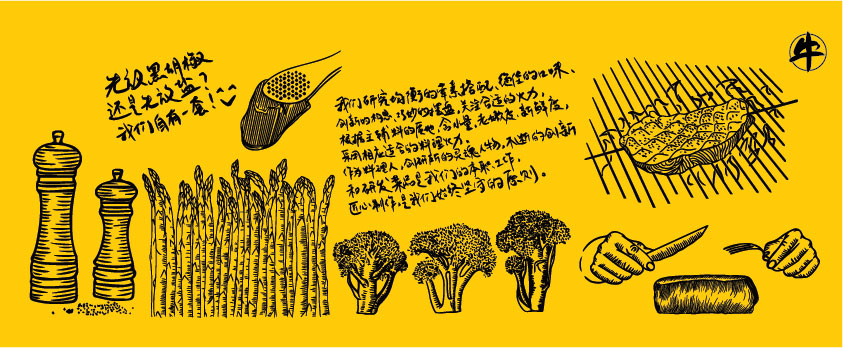 先放黑胡椒
还是先放盐?
我们自有一套!
我们研究均衡的荤素搭配、绝佳的口味、
创新的构思、巧妙的摆盘,关注合适的火力,
根据主辅料的质地,含水量,老嫩度,新鲜度,
采用相应适合的料理火力。
作为料理人,创新的灵魂人物,不断的创新
和研发菜品是我们的本职工作,
匠心制作,是我们始终坚守的原则。
牛